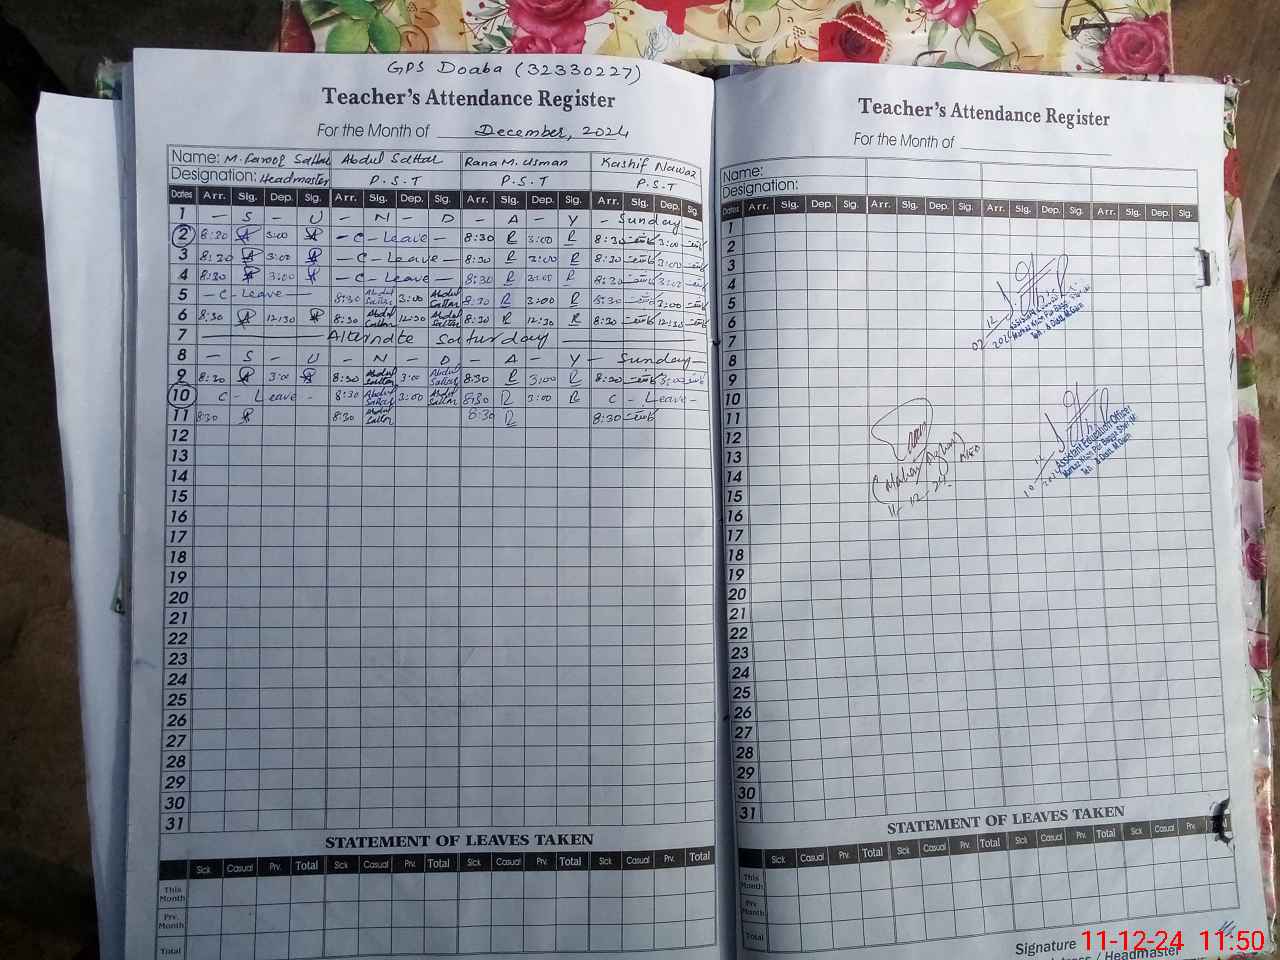 GPS Doaba (32330227)
Teacher's Attendance Register
For the Month of December, 2024
Name: M. Farooq Sattar Abdul Sattar Rana M. Usman Kashif Nawaz
Designation: Headmaster P.S.T P.S.T P.S.T
Dates Arr. Sig. Dep. Sig. Arr. Sig. Dep. Sig. Arr. Sig. Dep. Sig. Arr. Sig. Dep. Sig.
1 - S - U - N - D - A - Y - Sunday -
2 8:30 3:00 - C - Leave - 8:30 R 3:00 R 8:30 کاشف 3:00 کاشف
3 8:30 3:00 - C - Leave - 8:30 R 3:00 R 8:30 کاشف 3:00 کاشف
4 8:30 3:00 - C - Leave - 8:30 R 3:00 R 8:30 کاشف 3:00 کاشف
5 - C - Leave - 8:30 Abdul Sattar 3:00 Abdul Sattar 8:30 R 3:00 R 8:30 کاشف 3:00 کاشف
6 8:30 12:30 8:30 Abdul Sattar 12:30 Abdul Sattar 8:30 R 12:30 R 8:30 کاشف 12:30 کاشف
7 Alternate Saturday
8 - S - U - N - D - A - Y - Sunday -
9 8:30 3:00 8:30 Abdul Sattar 3:00 Abdul Sattar 8:30 R 3:00 R 8:30 کاشف 3:00 کاشف
10 C - Leave - 8:30 Abdul Sattar 3:00 Abdul Sattar 8:30 R 3:00 R C - Leave -
11 8:30 8:30 Abdul Sattar 8:30 R 8:30 کاشف
12
13
14
15
16
17
18
19
20
21
22
23
24
25
26
27
28
29
30
31
STATEMENT OF LEAVES TAKEN
Sick Casual Prv. Total Sick Casual Prv. Total Sick Casual Prv. Total Sick Casual Prv. Total
This Month
Prv. Month
Total
Teacher's Attendance Register
For the Month of
Name:
Designation:
Dates Arr. Sig. Dep. Sig. Arr. Sig. Dep. Sig. Arr. Sig. Dep. Sig. Arr. Sig. Dep. Sig.
1
2
3
4
5
6
7
8
9
10
11
12
13
14
15
16
17
18
19
20
21
22
23
24
25
26
27
28
29
30
31
02/12/2024
Assistant Education Officer
10/12/2024
Assistant Education Officer
AEO
11/12/24
STATEMENT OF LEAVES TAKEN
Sick Casual Prv. Total Sick Casual Prv. Total Sick Casual Prv. Total Sick Casual Prv.
This Month
Prv. Month
Total
Signature
/ Headmaster
11-12-24 11:50